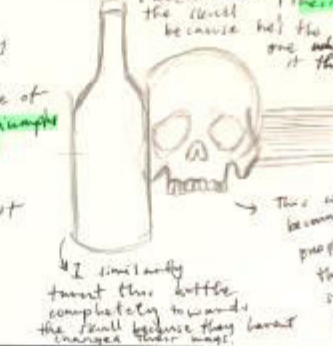 the skull
because he's the
one
it th
e of
triumphs
This
becom
peop
th
I similarly
turnt this bottle
completely towards
the skull because they havent
changed their ways.